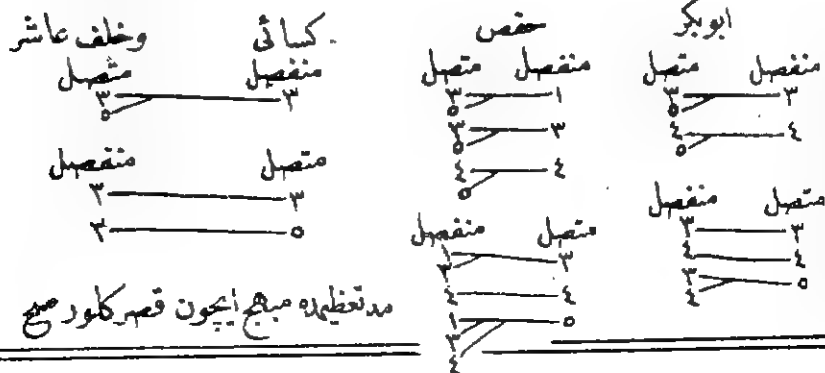 ابوبكر
منفصل متصل
٣ ٣
٥
٤ ٤
٥
متصل منفصل
٣ ٣
٤ ٤
٥ ٣
٤
حفص
منفصل متصل
١ ٣
٥
٣ ٣
٥
٤ ٤
٥
متصل منفصل
٣ ١
٣
٤ ٤
٥ ١
٣
٤
كسائى وخلف عاشر
منفصل متصل
٣ ٣
٥
متصل منفصل
٣ ٣
٥ ٣
مد تعظيمده مبهج ايچون قصر كلور صح